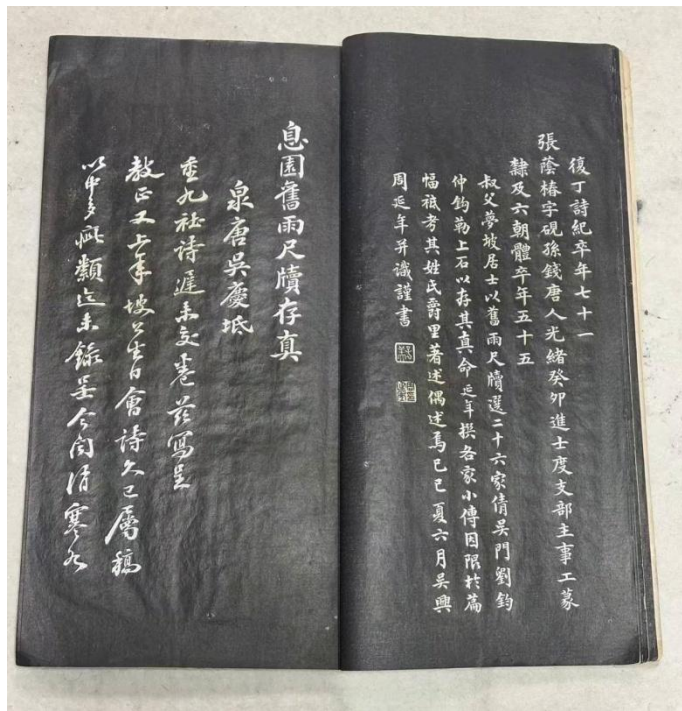 復丁詩紀卒年七十一
張蔭椿字硯孫錢唐人光緒癸卯進士度支部主事工篆
隸及六朝體卒年五十五
叔父夢坡居士以舊雨尺牘選二十六家倩吳門劉鈞
仲鈎勒上石以存其真命延年撰各家小傳因限於篇
幅祗考其姓氏爵里著述偶述焉己巳夏六月吳興
周延年并識謹書
息園舊雨尺牘存真
泉唐吳慶坻
重九社詩遲未交卷茲寫呈
教正又上年坡公生日會詩久已屬稿
以中多疵纇迄未錄呈今閏消寒